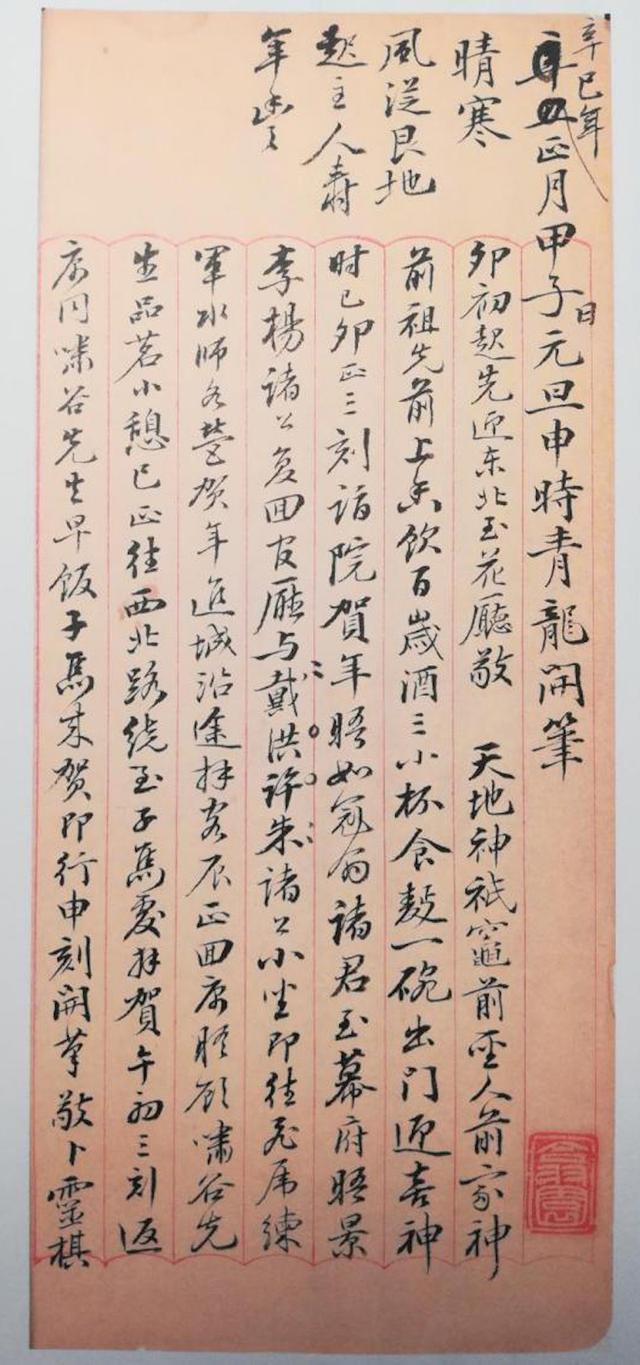 辛巳年
正月甲子日元旦申時青龍開筆
晴寒
風從艮地
起主人壽
年豐
卯初起先迎东北至花廳敬 天地神祇竈前聖人前家神
前祖先前上香飲百歲酒三小杯食麪一碗出门迎喜神
时已卯正三刻詣院賀年晤如冠翁諸君至幕府晤景
李楊諸公复回官廰与戴洪许朱諸公小坐即往飛虎練
軍水师各营贺年進城沿途拜客辰正回寓腔顾嘯谷先
生品茗小憩巳正往西北路绕至子馬處拜賀午初三刻返
寓同嘯谷先生早饭子馬来贺即行申刻開筆敬卜靈棋